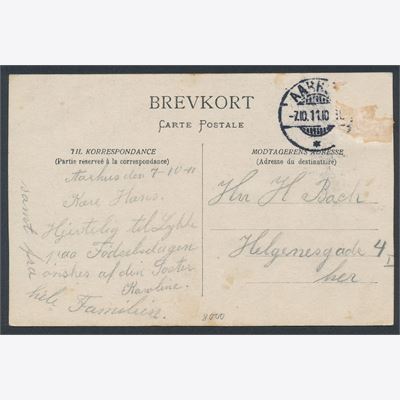 BREVKORT
CARTE POSTALE
AARH
-7.10.11.10
TIL KORRESPONDANCE
(Partie reservé à la correspondance)
MODTAGERENS ADRESSE
(Adresse du destinataire)
Aarhus den 7-10-11
Kære Hans.
Hjertelig til Lykke
paa Födselsdagen
önskes af din Söster
Karoline.
samt fra
hele Familien.
Hr. H Bach
Helgenesgade 4
her
8000